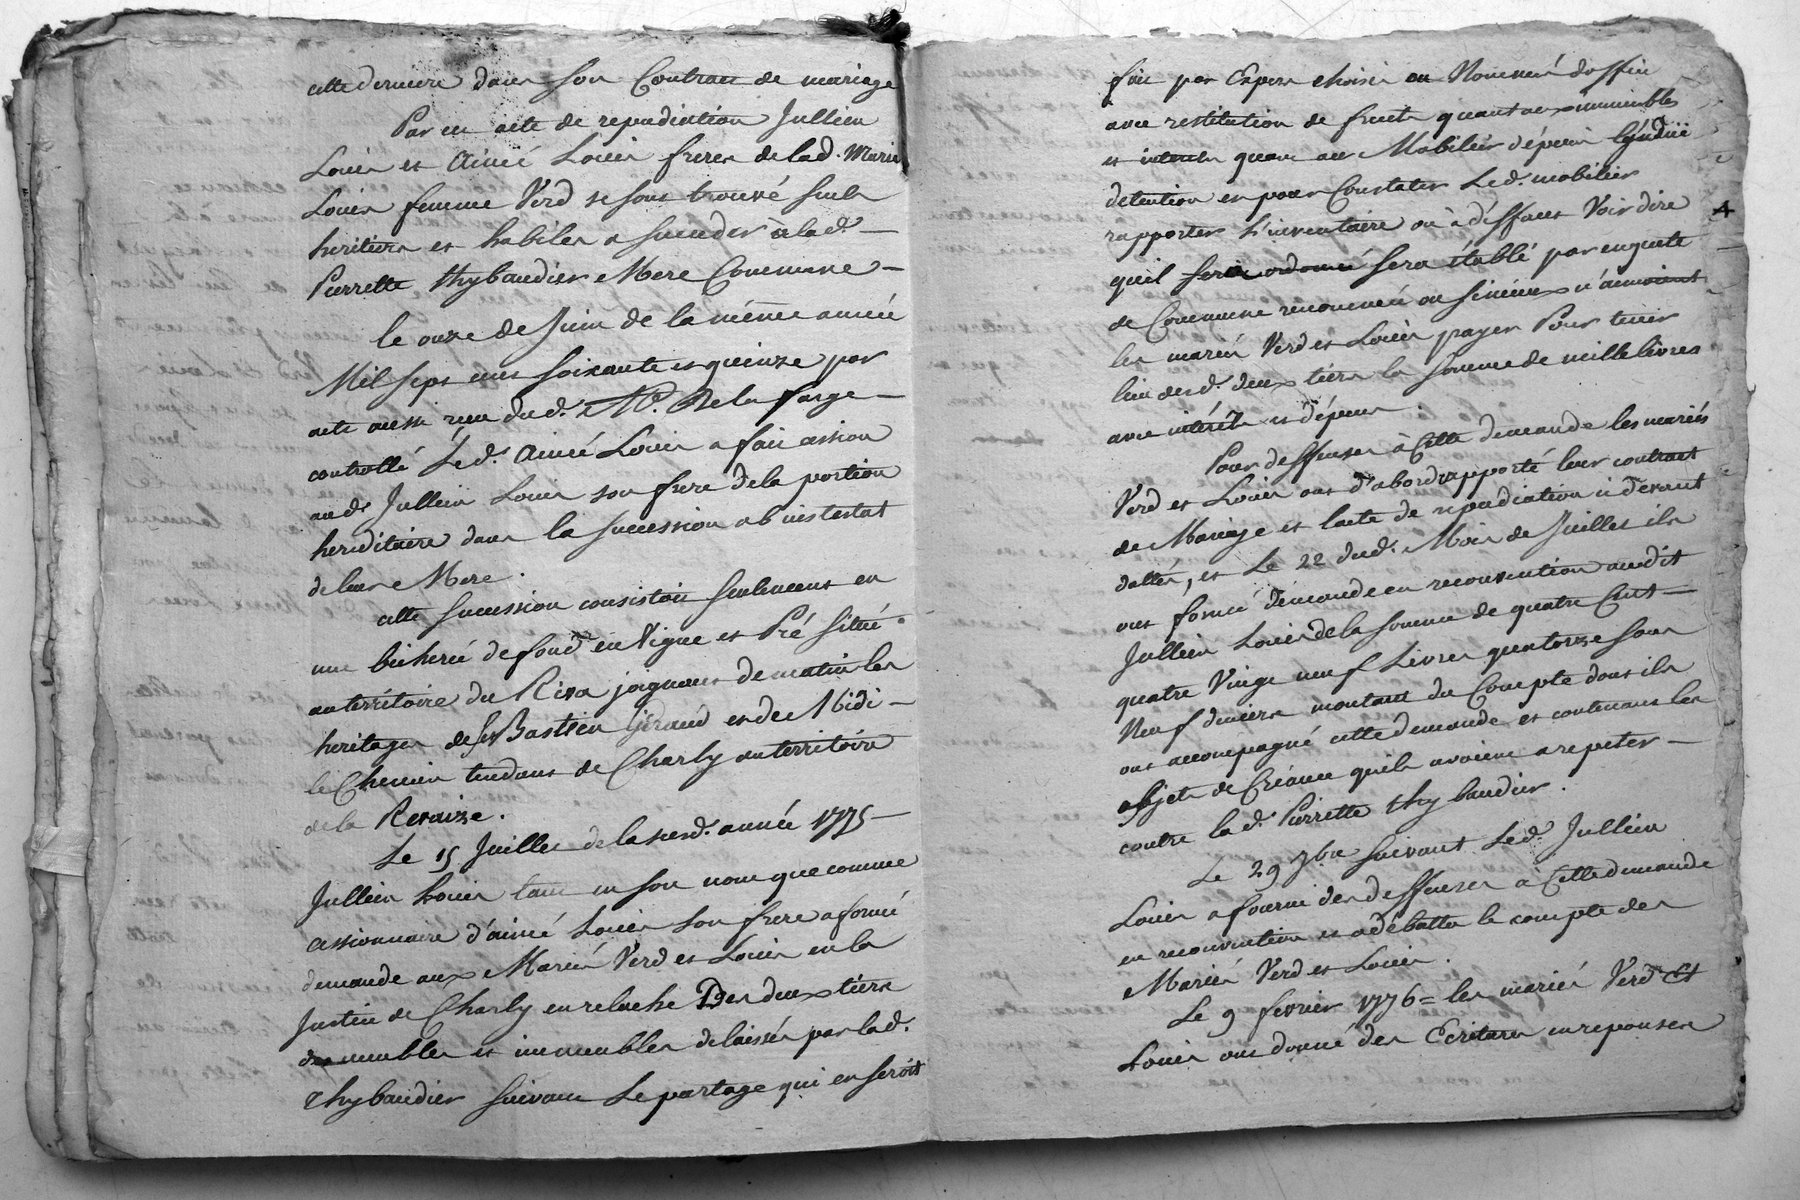 cette derniere dans son Contrat de mariage
Par cet acte de repudiation Jullien
Louis et Aimé Louis freres de lad. Marie
Louis femme Verd se sont trouvé seuls
heritiers et habiles a succeder a lad.
Pierrette thybaudier Mere Commune
le onze de Juin de la même année
Mil sept cens soixante et quinze par
acte aussi recu dud. Me. Delafarge
controllé Led. Aimé Louis a fait cession
aud. Jullien Louis son frere de la portion
hereditaire dans la succession ab intestat
de leur Mere.
cette succession consistoit seulement en
une bicherée de fond en Vigne et Pré situé
au territoire du Riva joignant de matin les
heritages de Sr Bastien Giraud et de Midi
le Chemin tendant de Charly au territoire
de la Ravaize.
Le 15 Juillet de la susd. année 1775
Jullien Louis tant en son nom que comme
cessionnaire d'aimé Louis son frere a formé
demande aux Mariés Verd et Louis en la
Justice de Charly en relache Des deux tiers
des meubles et immeubles delaissés par lad.
thybaudier suivant Le partage qui en seroit
fait par Expers choisis ou Nommés doffice
avec restitution de fruits quant aux immeubles
et interets quant au Mobilier dépuis l'indüe
detention et pour Constater Led. mobilier
rapporter L'inventaire ou à déffaut Voir dire
4
quil seroit ordonné sera établi par enquete
de Commune renommée ou si mieux n'aimoient
les mariés Verd et Louis payer Pour tenir
lieu desd. deux tiers la somme de mille livres
avec intérêts et dépens.
Pour deffenses à Cette demande les mariés
Verd et Louis ont d'abord rapporté leur contract
de Mariage et l'acte de repudiation ci devant
dattés, et Le 22 dud. Mois de Juillet ils
ont formé demande en reconvention audit
Jullien Louis de la somme de quatre Cent
quatre Vingt neuf Livres quatorze sous
Neuf deniers montant du Compte dont ils
ont accompagné cette demande et contenant les
objets de Créance quils avoient a repeter
contre lad. Pierrette thybaudier.
Le 29 7bre suivant Led. Jullien
Louis a fourni des deffenses à Cette demande
en reconvention et a débattu le compte des
Mariés Verd et Louis.
Le 9 fevrier 1776 = les mariés Verd Et
Louis ont donné des Ecritures en reponses